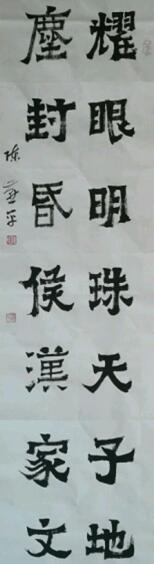 耀眼明珠天子地
塵封昏侯漢家文
陈
平